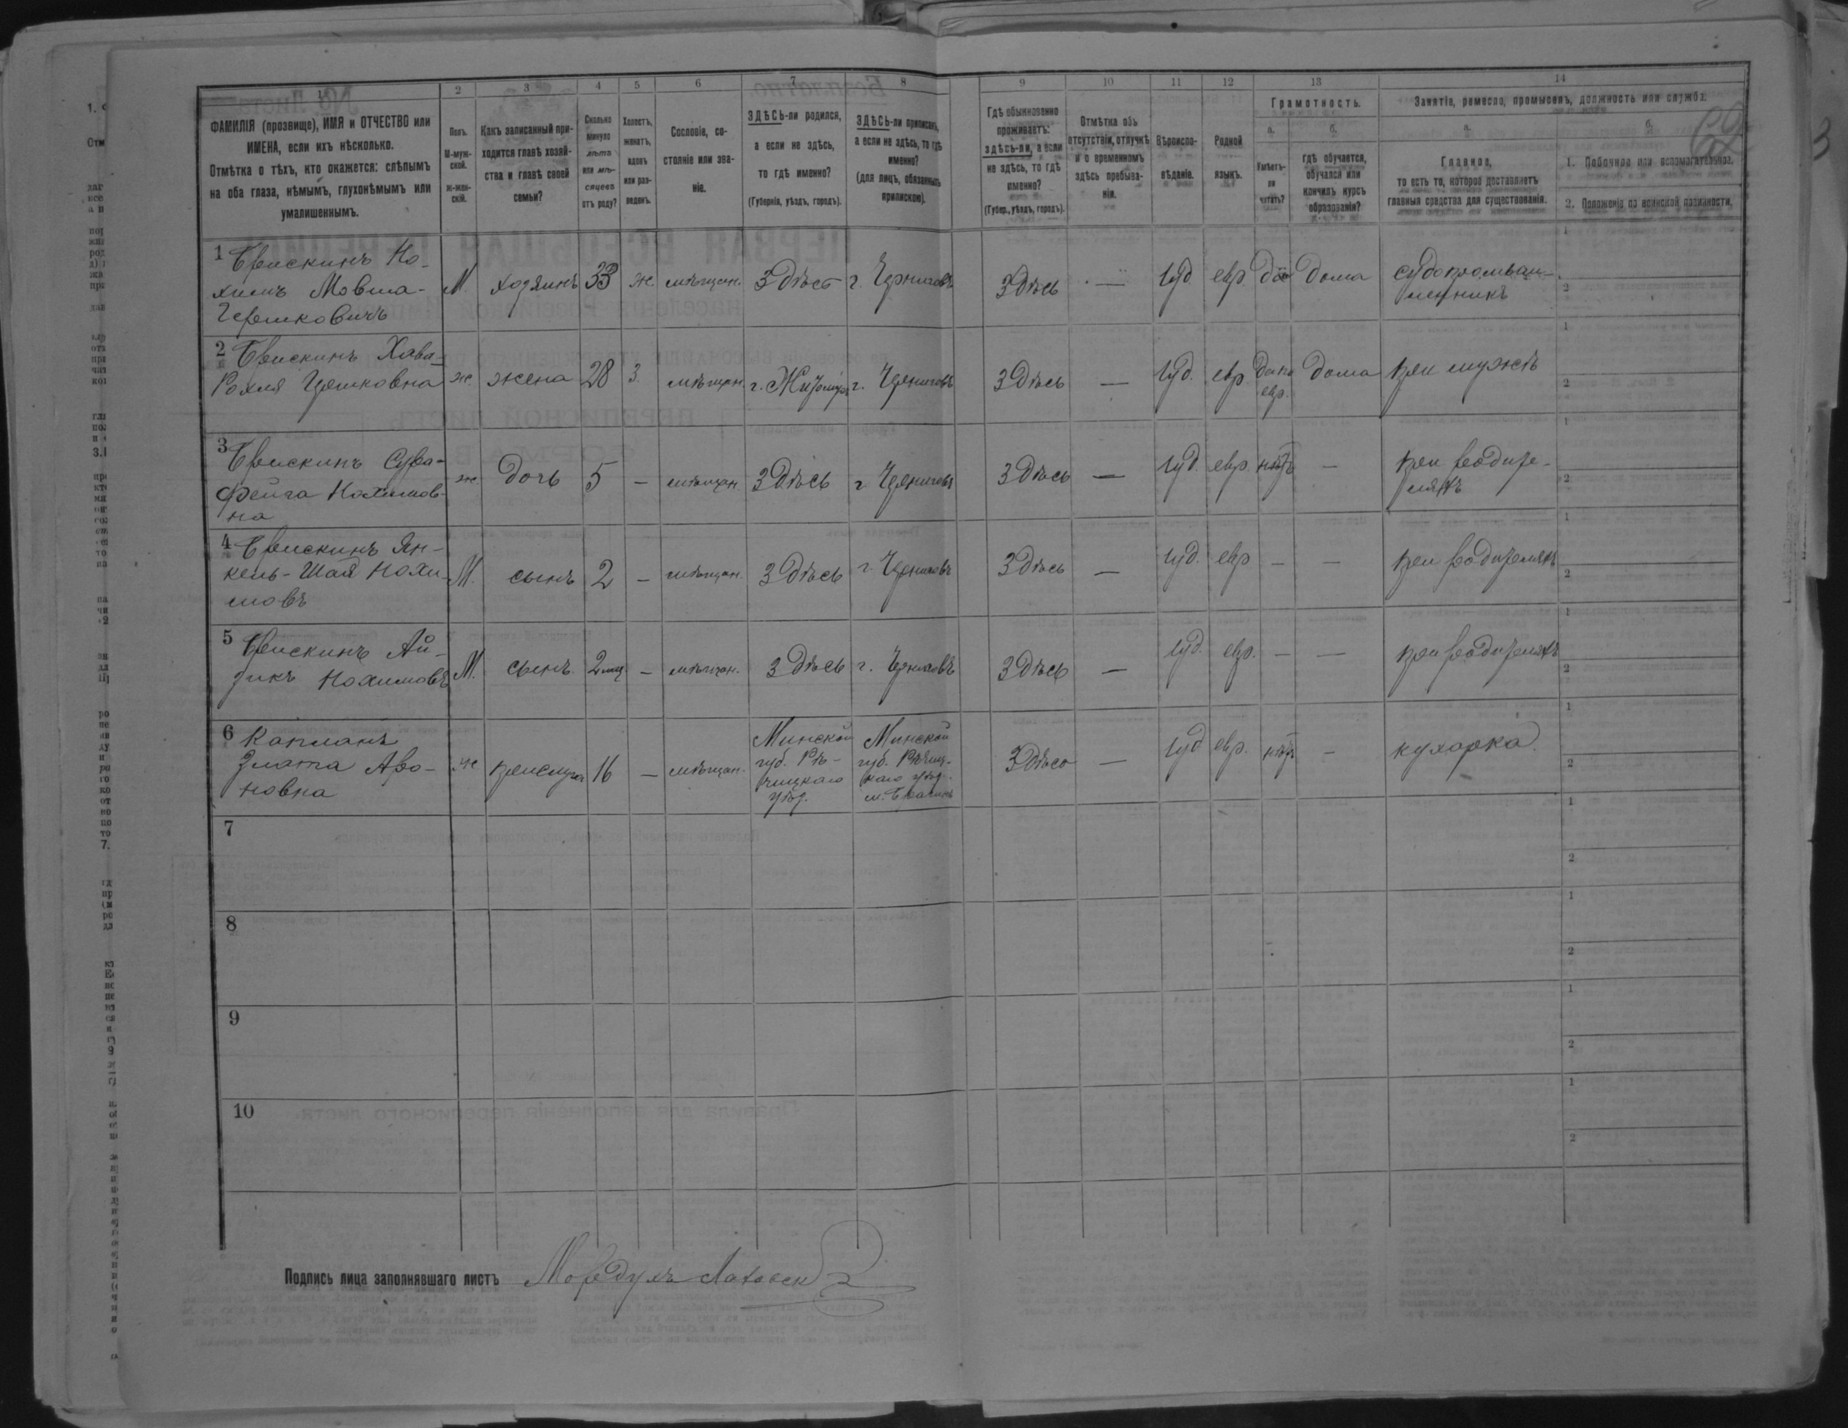 1
2
3
4
5
6
7
8
ФАМИЛІЯ (прозвище), ИМЯ и ОТЧЕСТВО или
ИМЕНА, если ихъ нѣсколько.
Отмѣтка о тѣхъ, кто окажется: слѣпымъ
на оба глаза, нѣмымъ, глухонѣмымъ или
умалишеннымъ.
Полъ.
М-муж-
ской.
ж-жен-
скій.
Какъ записанный при-
ходится главѣ хозяй-
ства и главѣ своей
семьи?
Сколько
минуло
лѣтъ
или мѣ-
сяцевъ
отъ роду?
Холостъ,
женатъ,
вдовъ
или раз-
веденъ.
Сословіе, со-
стояніе или зва-
ніе.
ЗДѢСЬ-ли родился,
а если не здѣсь,
то гдѣ именно?
(Губернія, уѣздъ, городъ).
ЗДѢСЬ-ли приписанъ,
а если не здѣсь, то гдѣ
именно?
(для лицъ, обязанныхъ
припискою).
9
10
11
12
13
14
Гдѣ обыкновенно
проживаетъ:
здѣсь-ли, а если
не здѣсь, то гдѣ
именно?
(Губер., уѣздъ, городъ).
Отмѣтка объ
отсутствіи, отлучкѣ
и о временномъ
здѣсь пребыва-
ніи.
Вѣроиспо-
вѣданіе.
Родной
языкъ.
Грамотность.
а.
б.
Умѣетъ-
ли
читать?
гдѣ обучается,
обучался или
кончилъ курсъ
образованія?
Занятіе, ремесло, промыселъ, должность или служба.
а.
б.
Главное,
то есть то, которое доставляетъ
главныя средства для существованія.
1. Побочное или вспомогательное.
2. Положеніе по воинской повинности.
1 Брискинъ Но-
химъ Мовша-
Гершковичъ
М хозяинъ 33 ж. мѣщан. Здѣсь г. Черниговъ Здѣсь — Іуд. евр. да дома
2 Брискинъ Хава-
Рохля Цешковна
ж. жена 28 з. мѣщан. г. Житомиръ г. Черниговъ Здѣсь — Іуд. евр. да по
евр. дома при мужѣ
3 Брискинъ Сура-
Фейга Нохимов-
на
ж. дочь 5 — мѣщан. Здѣсь г. Черниговъ Здѣсь — Іуд. евр. нѣтъ — при родите-
ляхъ
4 Брискинъ Ян-
кель-Шая Нохи-
мовъ
М. сынъ 2 — мѣщан. Здѣсь г. Черниговъ Здѣсь — Іуд. евр. — — при родителяхъ
5 Брискинъ Ай-
зикъ Нохимовъ
М. сынъ 2 мц — мѣщан. Здѣсь г. Черниговъ Здѣсь — Іуд. евр. — — при родителяхъ
6 Капланъ
Злата Аро-
новна
ж прислуга 16 — мѣщан.
Минской
губ. Рѣ-
чицкаго
уѣзд.
Минской
губ. Рѣчиц-
каго уѣзд.
м. Брагинъ
Здѣсь — Іуд. евр. нѣтъ — кухарка
7
8
9
10
Подпись лица заполнявшаго листъ Мордухъ